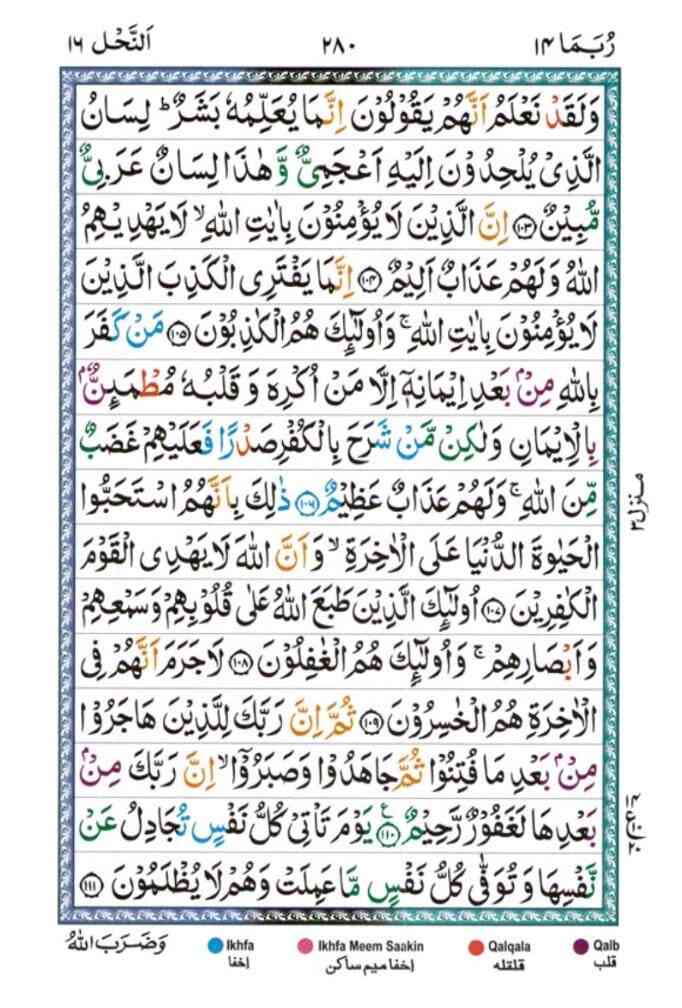 رُبَمَا ۱۴
۲۸۰
اَلنَّحْل ۱۶
وَلَقَدْ نَعْلَمُ اَنَّهُمْ يَقُوْلُوْنَ اِنَّمَا يُعَلِّمُهٗ بَشَرٌ ؕ لِسَانُ
الَّذِىْ يُلْحِدُوْنَ اِلَيْهِ اَعْجَمِىٌّ وَّ هٰذَا لِسَانٌ عَرَبِىٌّ
مُّبِيْنٌ ۝۱۰۳ اِنَّ الَّذِيْنَ لَا يُؤْمِنُوْنَ بِاٰيٰتِ اللّٰهِ ۙ لَا يَهْدِيْهِمُ
اللّٰهُ وَلَهُمْ عَذَابٌ اَلِيْمٌ ۝۱۰۴ اِنَّمَا يَفْتَرِى الْكَذِبَ الَّذِيْنَ
لَا يُؤْمِنُوْنَ بِاٰيٰتِ اللّٰهِ ۚ وَاُولٰٓئِكَ هُمُ الْكٰذِبُوْنَ ۝۱۰۵ مَنْ كَفَرَ
بِاللّٰهِ مِنْۢ بَعْدِ اِيْمَانِهٖۤ اِلَّا مَنْ اُكْرِهَ وَ قَلْبُهٗ مُطْمَئِنٌّۢ
بِالْاِيْمَانِ وَلٰكِنْ مَّنْ شَرَحَ بِالْكُفْرِ صَدْرًا فَعَلَيْهِمْ غَضَبٌ
مِّنَ اللّٰهِ ۚ وَلَهُمْ عَذَابٌ عَظِيْمٌ ۝۱۰۶ ذٰلِكَ بِاَنَّهُمُ اسْتَحَبُّوا
الْحَيٰوةَ الدُّنْيَا عَلَى الْاٰخِرَةِ ۙ وَ اَنَّ اللّٰهَ لَا يَهْدِى الْقَوْمَ
الْكٰفِرِيْنَ ۝۱۰۷ اُولٰٓئِكَ الَّذِيْنَ طَبَعَ اللّٰهُ عَلٰى قُلُوْبِهِمْ وَسَمْعِهِمْ
وَاَبْصَارِهِمْ ۚ وَاُولٰٓئِكَ هُمُ الْغٰفِلُوْنَ ۝۱۰۸ لَا جَرَمَ اَنَّهُمْ فِى
الْاٰخِرَةِ هُمُ الْخٰسِرُوْنَ ۝۱۰۹ ثُمَّ اِنَّ رَبَّكَ لِلَّذِيْنَ هَاجَرُوْا
مِنْۢ بَعْدِ مَا فُتِنُوْا ثُمَّ جَاهَدُوْا وَصَبَرُوْۤا ۙ اِنَّ رَبَّكَ مِنْۢ
بَعْدِهَا لَغَفُوْرٌ رَّحِيْمٌ ۝۱۱۰ ع يَوْمَ تَاْتِىْ كُلُّ نَفْسٍ تُجَادِلُ عَنْ
نَّفْسِهَا وَ تُوَفّٰى كُلُّ نَفْسٍ مَّا عَمِلَتْ وَهُمْ لَا يُظْلَمُوْنَ ۝۱۱۱
منزل ۳
وَضَرَبَ اللّٰهُ
Ikhfa
اِخفا
Ikhfa Meem Saakin
اِخفا ميم ساكن
Qalqala
قلقله
Qalb
قلب